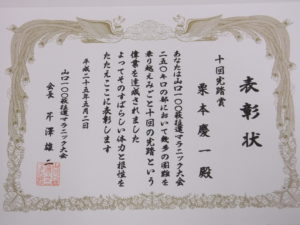 表彰状
十回完踏賞
栗本慶一殿
あなたは山口100萩往還マラニック大会
二五〇キロの部において幾多の困難を
乗り越えみごと十回の完踏という
偉業を達成されました
よってそのすばらしい体力と根性を
たたえここに表彰します
平成二十五年五月二日
山口100萩往還マラニック大会
会長 芹澤雄二